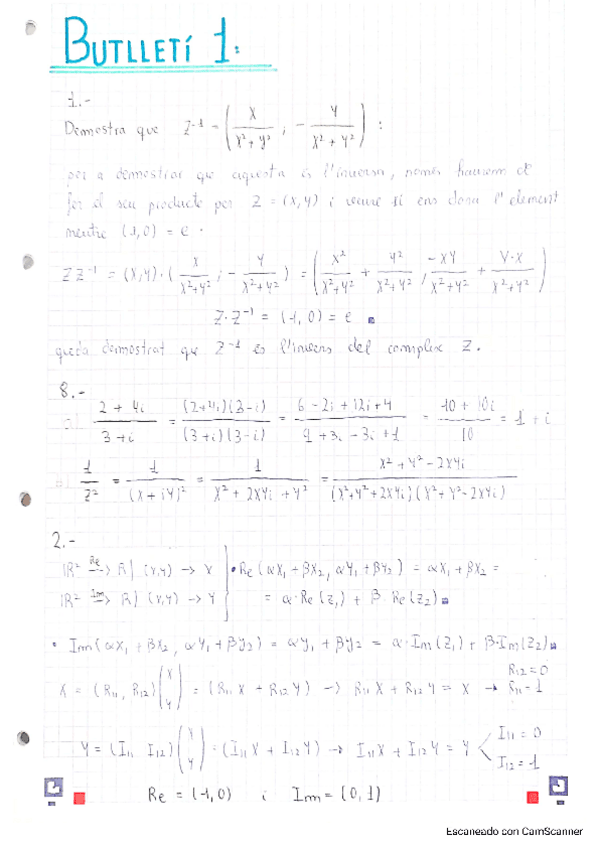 BUTLLETÍ 1:
1.-
Demostra que Z⁻¹ = (X/(X²+Y²) ; - Y/(X²+Y²)) :
per a demostrar que aquesta és l'inversa, només haurem de
fer el seu producte per Z = (X,Y) i veure si ens dona l'element
neutre (1,0) = e.
ZZ⁻¹ = (X,Y)·(X/(X²+Y²) ; - Y/(X²+Y²)) = (X²/(X²+Y²) + Y²/(X²+Y²) , -XY/(X²+Y²) + Y·X/(X²+Y²))
Z·Z⁻¹ = (1,0) = e
queda demostrat que Z⁻¹ és l'invers del complex Z.
8.-
(2+4i)/(3+i) = (2+4i)(3-i)/((3+i)(3-i)) = (6-2i+12i+4)/(9+3i-3i+1) = (10+10i)/10 = 1+i
1/Z² = 1/(X+iY)² = 1/(X²+2XYi+Y²) = (X²+Y²-2XYi)/((X²+Y²+2XYi)(X²+Y²-2XYi))
2.-
IR² Re→ IR| (X,Y) → X • Re(αX₁+βX₂, αY₁+βY₂) = αX₁+βX₂ =
IR² Im→ IR| (X,Y) → Y = α·Re(Z₁) + β Re(Z₂)
• Im(αX₁+βX₂, αY₁+βY₂) = αY₁+βY₂ = α·Im(Z₁) + β·Im(Z₂)
X = (R₁₁, R₁₂)(X Y) = (R₁₁X + R₁₂Y) → R₁₁X + R₁₂Y = X → R₁₂=0 R₁₁=1
Y = (I₁₁ I₁₂)(X Y) = (I₁₁X + I₁₂Y) → I₁₁X + I₁₂Y = Y I₁₁=0 I₁₂=1
Re = (1,0) i Im = (0,1)
Escaneado con CamScanner